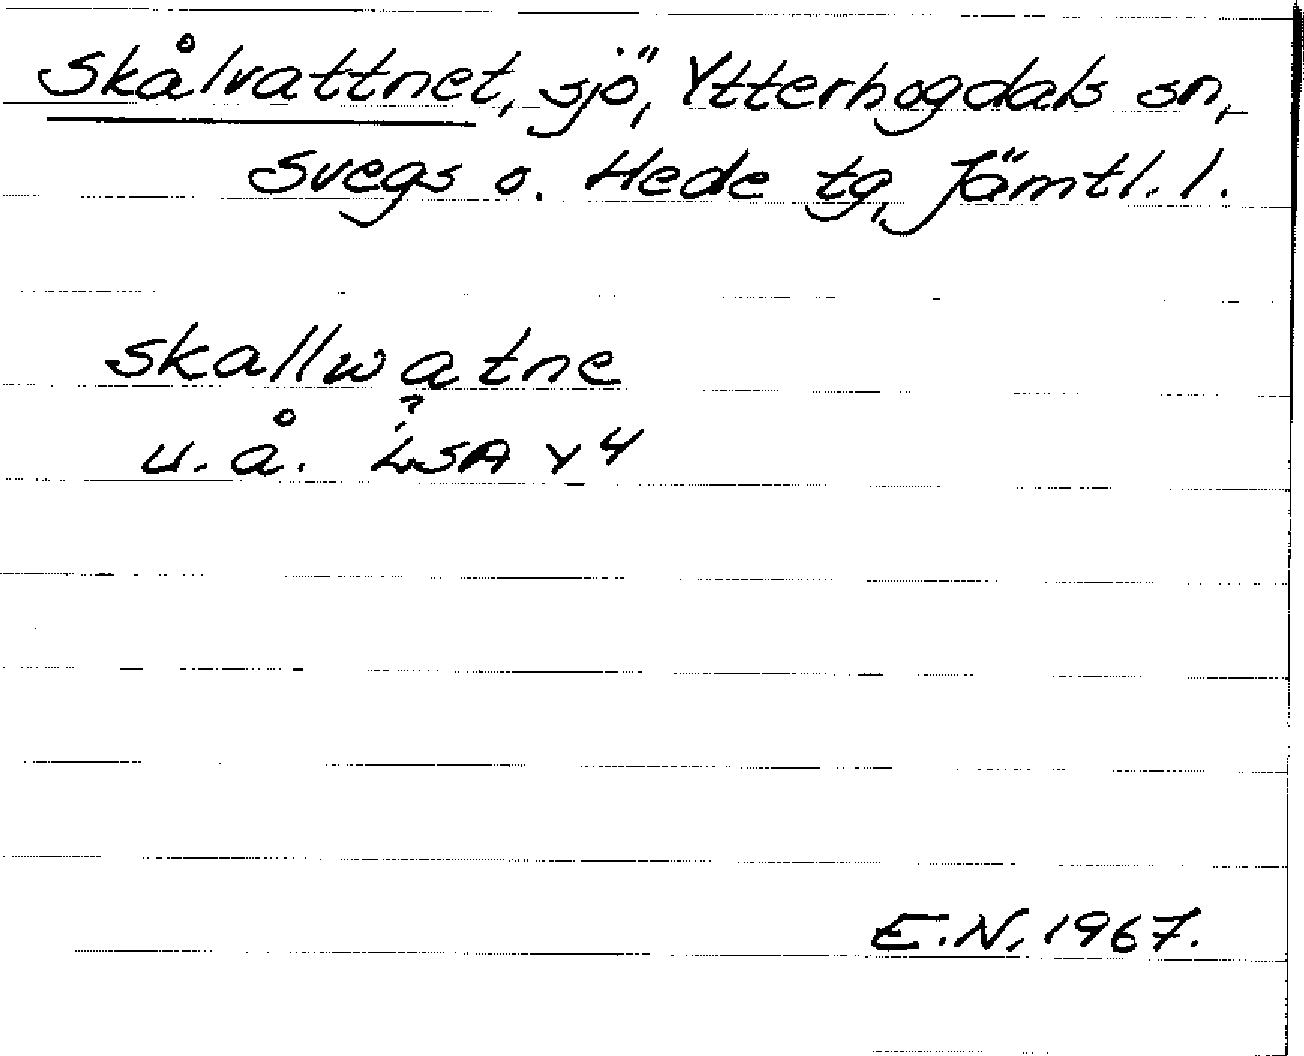 Skålvattnet, sjö, Ytterhogdals sn,
Svegs o. Hede tg, Jämtl. l.
skallwatne
?
u. å. LSA Y 4
E.N. 1967.